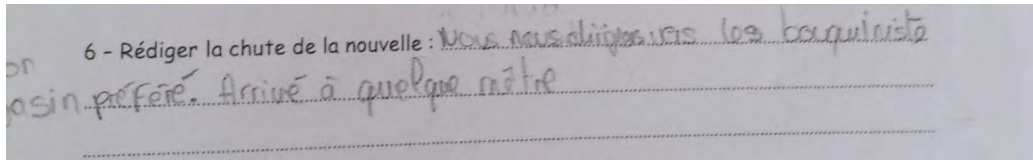 6 - Rédiger la chute de la nouvelle : Nous nous dirigeons vers les bouquiniste
on
asin préféré. Arrivé à quelque mètre